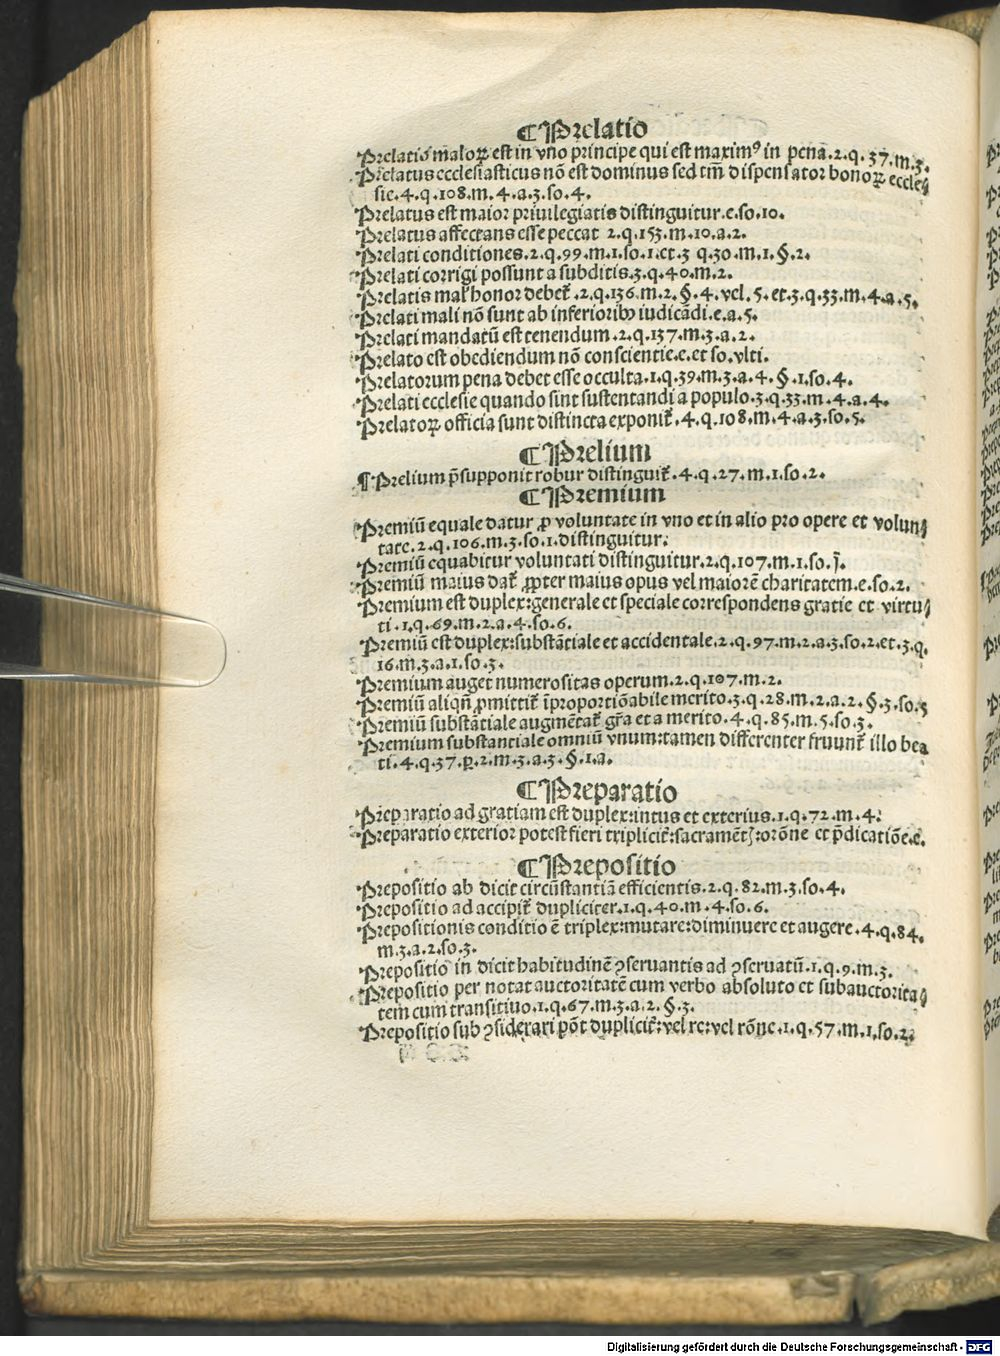 ¶ Prelatio
Prelatio maloꝝ est in vno principe qui est maximꝰ in pena.2.q.37.m.3.
Prelatus ecclesiasticus nõ est dominus sed tm̃ dispensator bonoꝝ eccle⸗
sie.4.q.108.m.4.a.3.so.4.
Prelatus est maior priuilegiatis distinguitur.e.so.10.
Prelatus affectans esse peccat 2.q.153.m.10.a.2.
Prelati conditiones.2.q.99.m.1.so.1.et.3 q.30.m.1.§.2.
Prelati corrigi possunt a subditis.3.q.40.m.2.
Prelatis mal' honor debet᷑.2.q.136.m.2.§.4.vel.5.et.3.q.33.m.4.a.5.
Prelati mali nõ sunt ab inferiorib⁹ iudicãdi.e.a.5.
Prelati mandatũ est tenendum.2.q.137.m.3.a.2.
Prelato est obediendum nõ conscientie.e.et so.vlti.
Prelatorum pena debet esse occulta.1.q.39.m.3.a.4.§.1.so.4.
Prelati ecclesie quando sint sustentandi a populo.3.q.33.m.4.a.4.
Prelatoꝝ officia sunt distincta exponit᷑.4.q.108.m.4.a.3.so.5.
¶ Prelium
¶ Prelium p̃supponit robur distinguit᷑.4.q.27.m.1.so.2.
¶ Premium
Premiũ equale datur ꝓ voluntate in vno et in alio pro opere et volun⸗
tate.2.q.106.m.3.so.1.distinguitur.
Premiũ equabitur voluntati distinguitur.2.q.107.m.1.so.j.
Premiũ maius dat᷑ ꝓpter maius opus vel maiorẽ charitatem.e.so.2.
Premium est duplex:generale et speciale correspondens gratie et virtu⸗
ti.1.q.69.m.2.a.4.so.6.
Premiũ est duplex:substãtiale et accidentale.2.q.97.m.2.a.3.so.2.et.3.q.
16.m.3.a.1.so.3.
Premium auget numerositas operum.2.q.107.m.2.
Premiũ aliqñ ꝓmittit᷑ ĩproportiõabile merito.3.q.28.m.2.a.2.§.3.so.5
Premiũ substãtiale augmẽtat᷑ gr̃a et a merito.4.q.85.m.5.so.3.
Premium substantiale omniũ vnum:tamen differenter fruunt᷑ illo bea
ti.4.q.37.p.2.m.3.a.3.§.1.a.
¶ Preparatio
Preparatio ad gratiam est duplex:intus et exterius.1.q.72.m.4.
Preparatio exterior potest fieri triplicit᷑:sacramẽtꝭ:orõne et p̃dicatiõe.e.
¶ Prepositio
Prepositio ab dicit circũstantiã efficientis.2.q.82.m.3.so.4.
Prepositio ad accipit᷑ dupliciter.1.q.40.m.4.so.6.
Prepositionis conditio ẽ triplex:mutare:diminuere et augere.4.q.84.
m.3.a.2.so.3.
Prepositio in dicit habitudinẽ ꝯseruantis ad ꝯseruatũ.1.q.9.m.3.
Prepositio per notat auctoritatẽ cum verbo absoluto et subauctorita⸗
tem cum transitiuo.1.q.67.m.3.a.2.§.3.
Prepositio sub ꝯsiderari põt duplicit᷑:vel re:vel rõne.1.q.57.m.1.so.2.
Digitalisierung gefördert durch die Deutsche Forschungsgemeinschaft - DFG